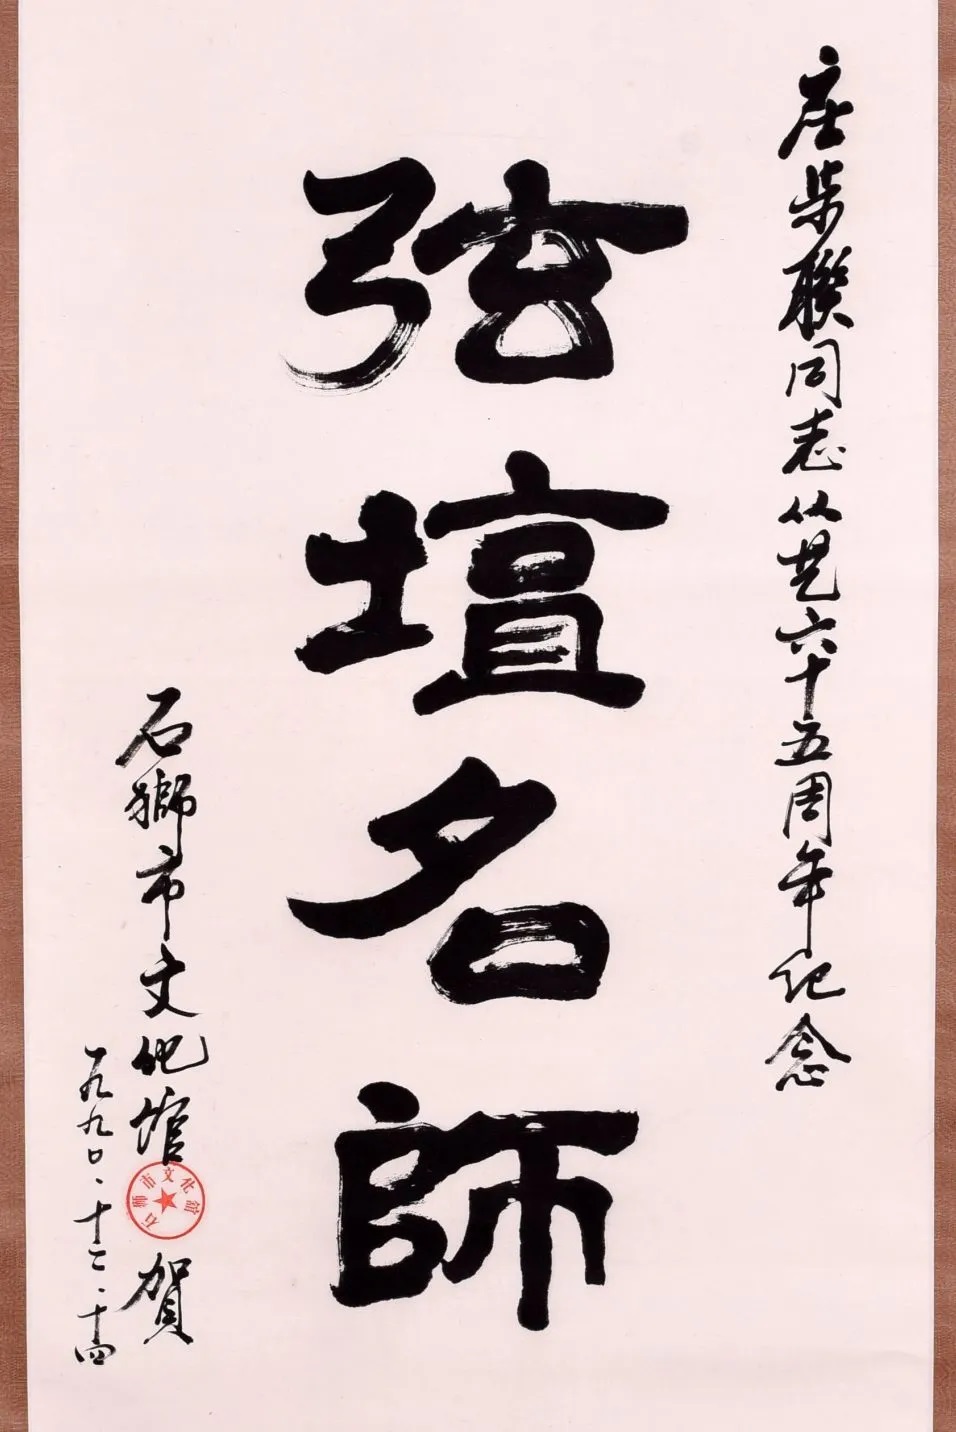 庄柴聯同志从艺六十五周年纪念
弦壇名師
石獅市文化馆
賀
一九九〇、十二、十四
石狮市文化馆